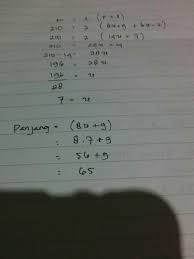 = 2 (
210 = 2 (8x + 9 + 6x - 2)
210 = 2 (14x + 7)
210 = 28x + 14
210 - 14 = 28x
196 = 28x
196 = x
28
7 = x
Panjang = (8x + 9)
= 8.7 + 9
= 56 + 9
= 65